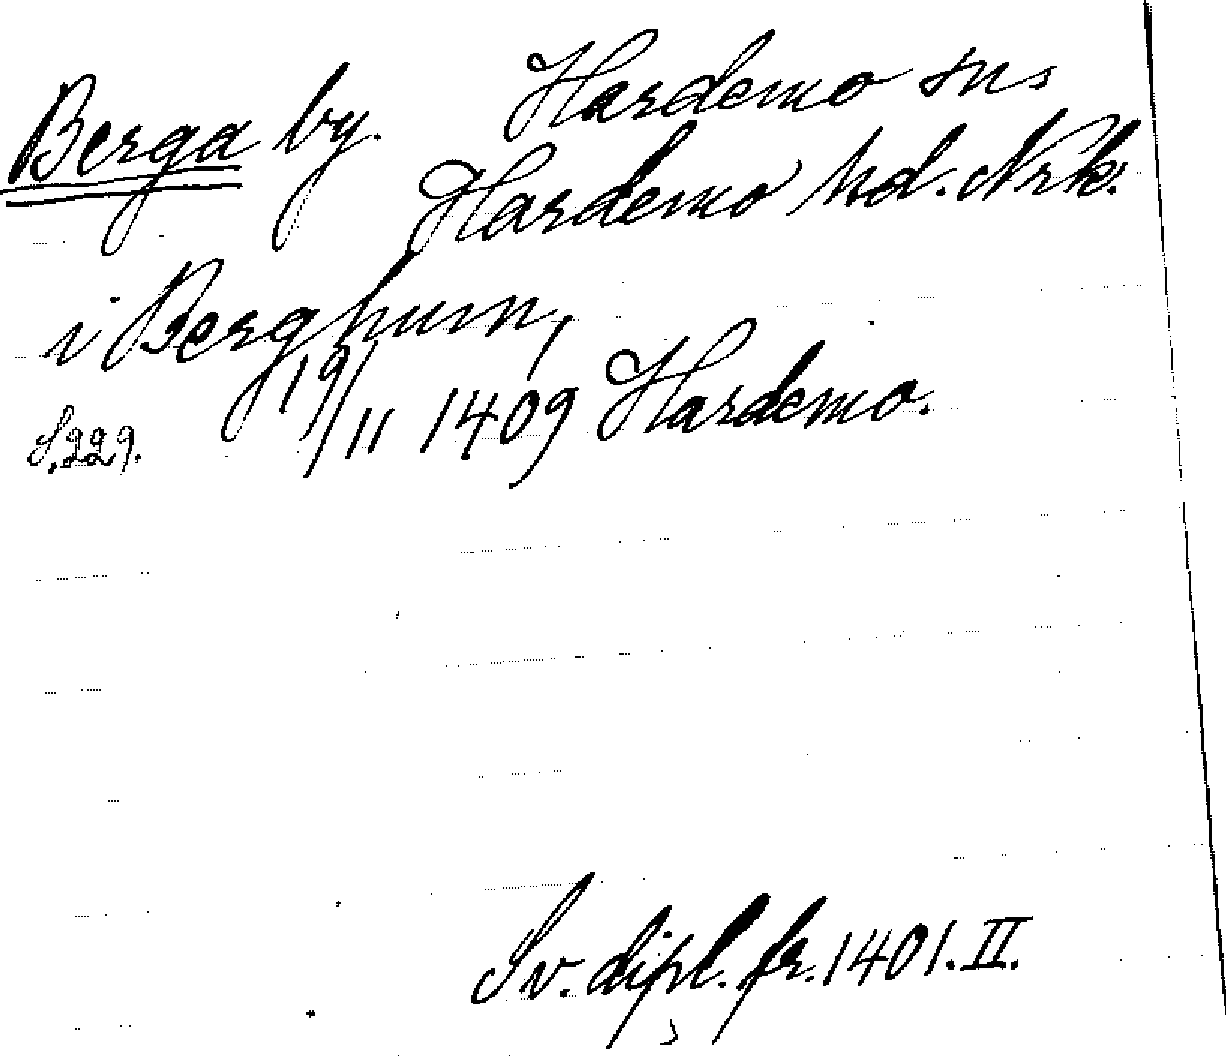 Berga by. Hardemo sn.
Hardemo hd. Nrk.
i Berghum,
19/11 1409 Hardemo.
S. 229.
Sv. dipl. fr. 1401. II.